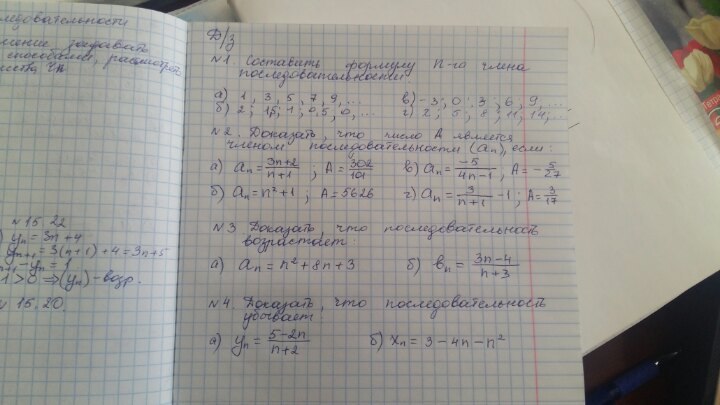 ледовательности
способами, рассмотр
№ 15.22
yₙ = 3n+4
yₙ₊₁ = 3(n+1)+4 = 3n+5
n+1 - yₙ = 1
1 > 0 ⇒ (yₙ) - возр.
15.20.
Д/з
№1 Составить формулу n-го члена
последовательности
а) 1, 3, 5, 7, 9, ... в) -3; 0; 3; 6; 9, ...
б) 2; 1,5; 1; 0,5; 0, ... г) 2, 5, 8, 11, 14, ...
№2. Доказать, что число А является
членом последовательности (aₙ), если:
а) aₙ = (3n+2)/(n+1); A = 302/101 в) aₙ = -5/(4n-1), A = -5/27
б) aₙ = n²+1; A = 5626 г) aₙ = 3/(n+1) - 1; A = 3/17
№3 Доказать, что последовательность
возрастает:
а) aₙ = n²+8n+3 б) bₙ = (3n-4)/(n+3)
№4. Доказать, что последовательность
убывает:
а) yₙ = (5-2n)/(n+2) б) xₙ = 3-4n-n²